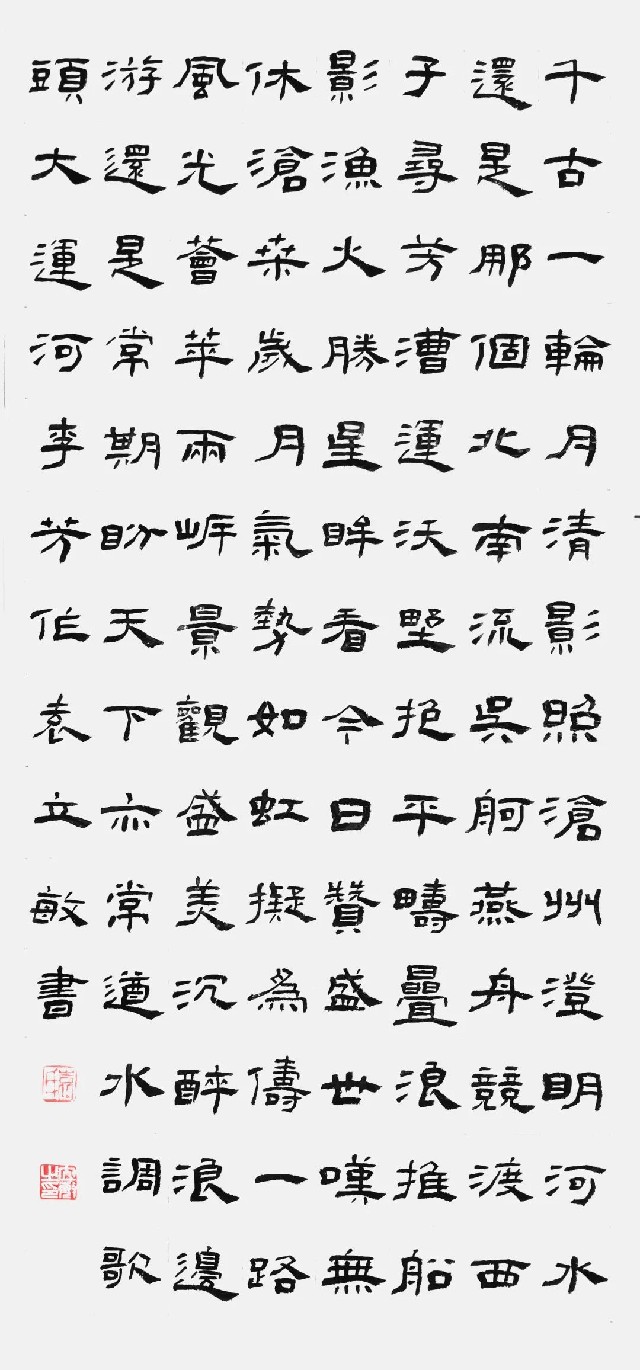 千古一輪月清影照滄州澄明河水
還是那個北南流吳舸燕舟競渡西
子尋芳漕運沃野抱平疇疊浪推船
影漁火勝星眸看今日贊盛世嘆無
休滄桑歲月氣勢如虹擬為儔一路
風光薈萃兩岸景觀盛美沉醉浪邊
游還是常期盼天下亦常遒水調歌
頭大運河李芳作袁立敏書